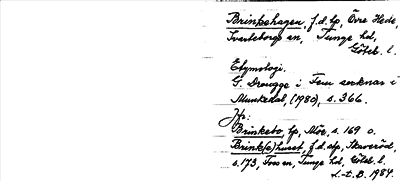 Brinkehagen, f.d. lp, Övre Hede,
Svarteborgs sn, Tunge hd,
Göteb. l.
Etymologi.
G. Drougge i Fem socknar i
Munkedal, (1980), s. 366.
Jfr:
Brinkebo, lp, Mör, s. 169 o.
Brink(e)huset, f.d. slp, Skaveröd,
s. 173, Foss sn, Tunge hd, Göteb. l.
L-t. B. 1984.